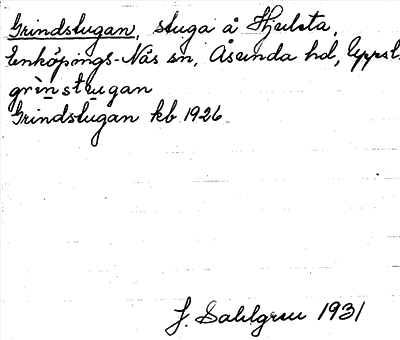 Grindstugan, stuga å Hjulsta,
Enköpings-Näs sn, Åsunda hd, Uppsl.
grìnstugan
Grindstugan kb 1926
J. Sahlgren 1931